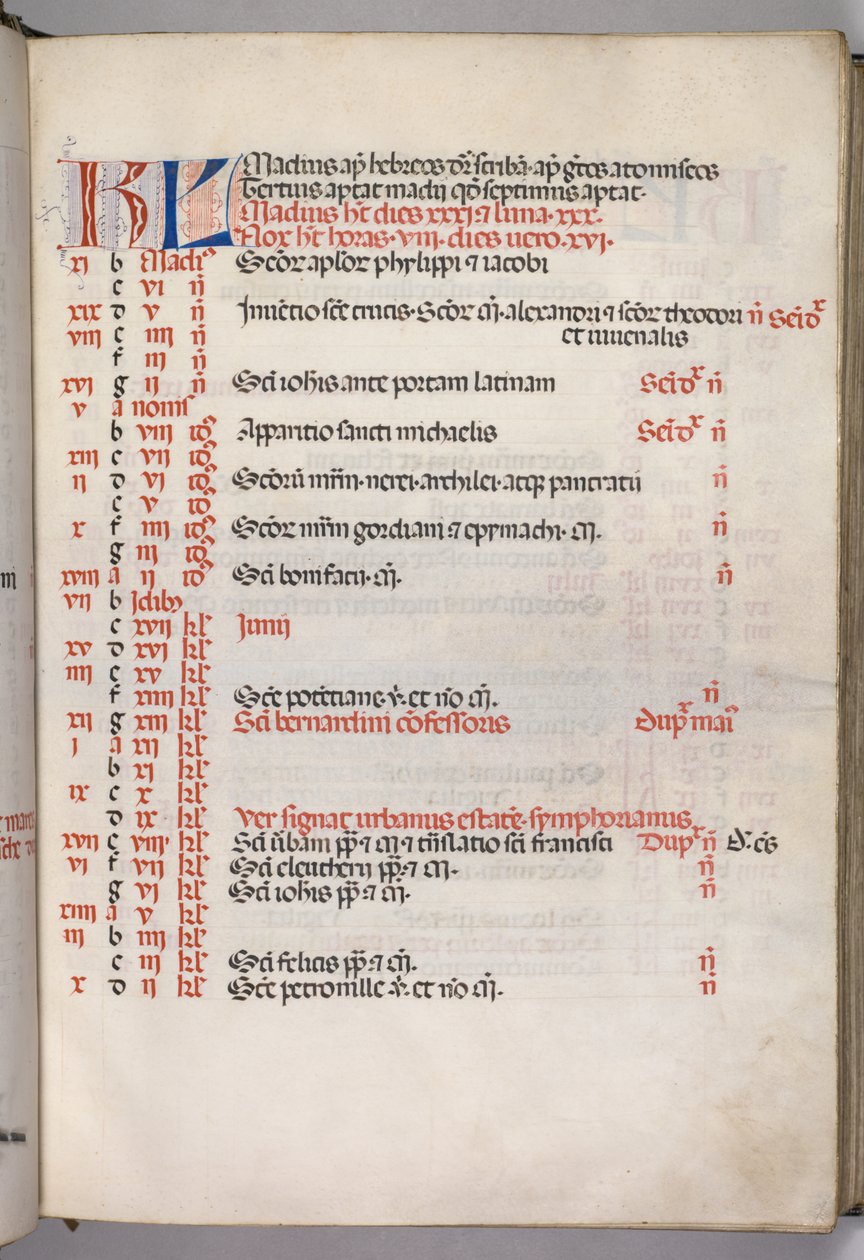 KL Madius ap̄ hebreos dr̄ scriba· ap̄ gr̄cos atomiscos
Tertius aptat madii qd̄ septimus aptat·
Madius ht̄ dies xxxi ⁊ luna· xxx·
Nox ht̄ horas· viii· dies uero· xvi·
xi b Madiꝰ Scōꝝ aplōꝝ phylippi ⁊ iacobi
c vi n̄
xix d v n̄ Inuētio scē crucis· Scōꝝ m̄· alexandri ⁊ scōꝝ theodori n̄ Semidx
viii e iiii n̄ et iuuenalis
f iii n̄
xvi g ii n̄ Scī ioh̄is ante portam latinam Semidx n̄
v a nonis
b viii idꝰ Apparitio sancti michaelis Semidx n̄
xiii c vii idꝰ
ii d vi idꝰ Scōrū mr̄m· nerei· archilei· atqꝫ pancratii n̄
e v idꝰ
x f iiii idꝰ Scōꝝ mr̄m gordiani ⁊ epymachi· m̄· n̄
g iii idꝰ
xviii a ii idꝰ Scī bonifacii· m̄· n̄
vii b Idibꝰ
c xvii kl̄ Iunii
xv d xvi kl̄
iiii e xv kl̄
f xiiii kl̄ Scē potētiane· v̄· et nō m̄· n̄
xii g xiii kl̄ Scī bernardini cōfessoris dupx maiꝰ
i a xii kl̄
b xi kl̄
ix c x kl̄
d ix kl̄ Ver signat urbanus estatē· symphorianus
xvii e viii· kl̄ Scī úbani pp̄ ⁊ m̄ ⁊ trāslatio scī francisci Dupx n̄
vi f vii kl̄ Scī eleutherii pp̄· ⁊ m̄· n̄
g vi kl̄ Scī ioh̄is pp̄ ⁊ m̄· n̄
xiiii a v kl̄
iii b iiii kl̄
c iii kl̄ Scī felicis pp̄· ⁊ m̄· n̄
x d ii kl̄ Scē petronille v̄· et nō m̄· n̄